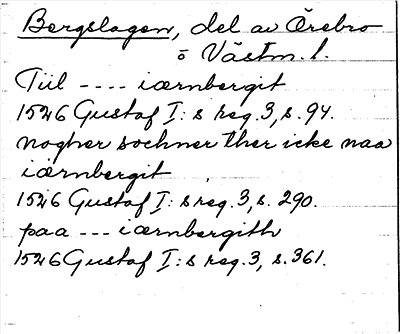 Bergslagen, del av Örebro
o Västm. l.
Till ---- iærnbergit
1526 Gustaf I:s reg. 3, s. 94.
nogher sochner ther icke naa
iærnbergit
1526 Gustaf I:s reg. 3, s. 290.
paa --- iærnbergith
1526 Gustaf I:s reg. 3, s. 361.